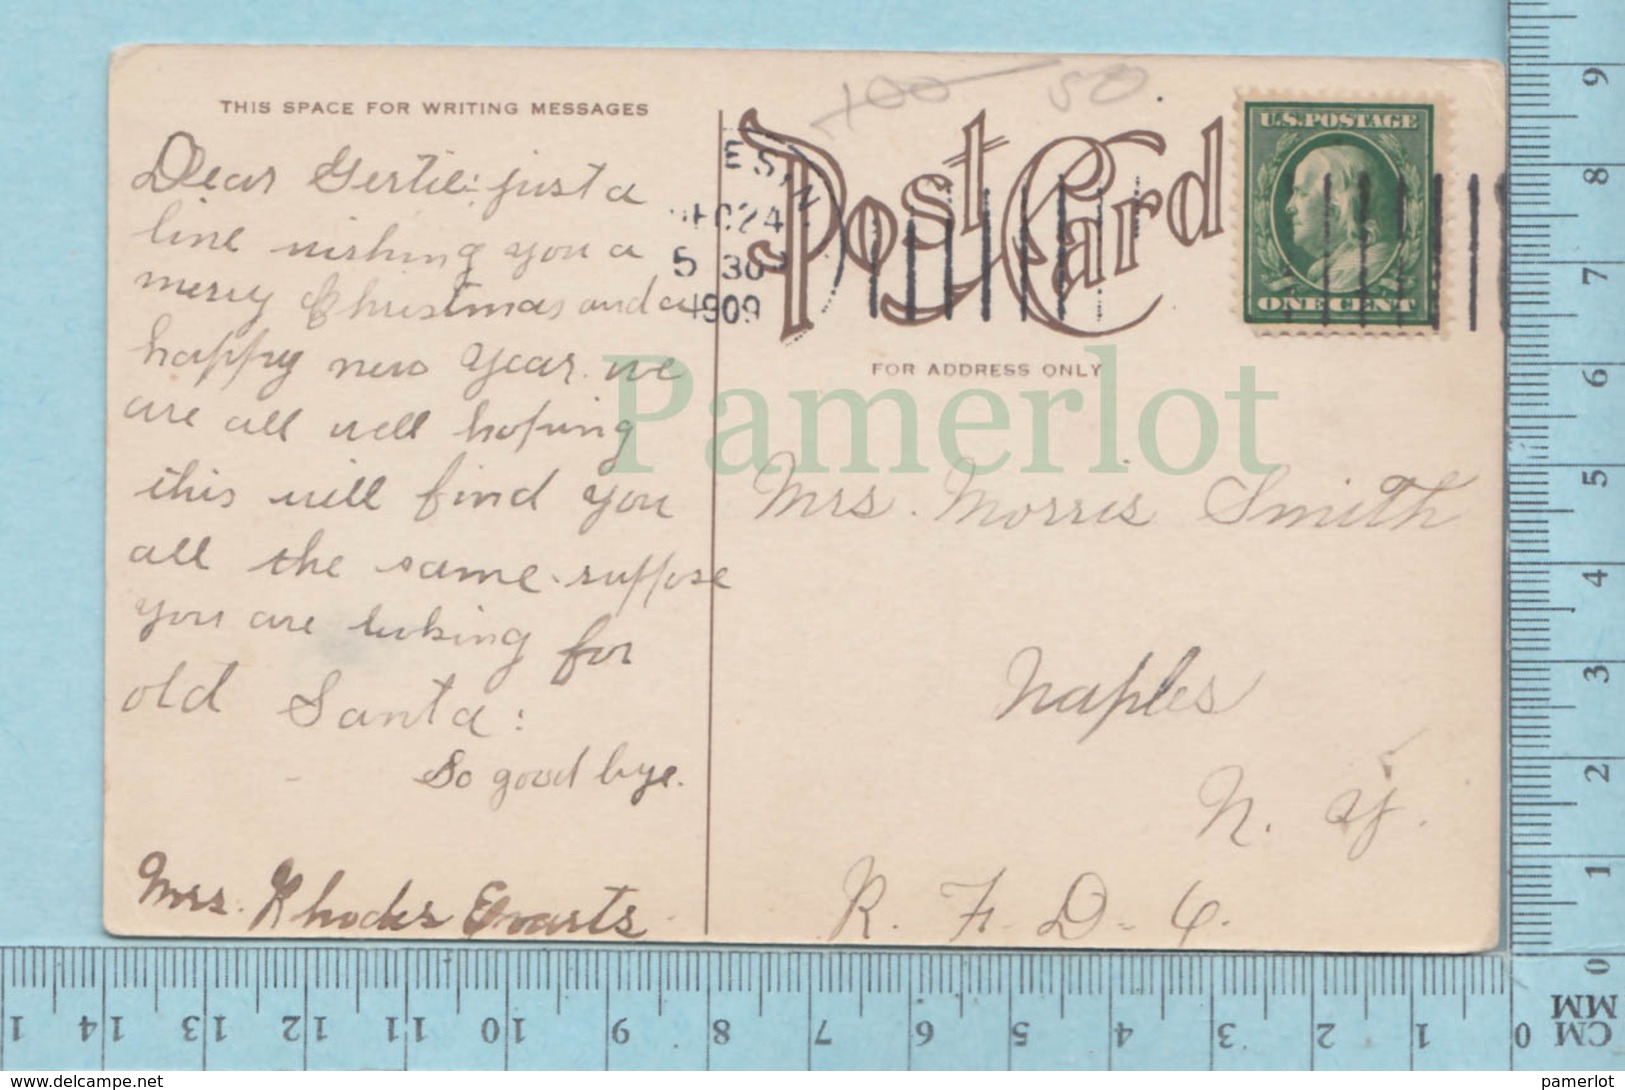 THIS SPACE FOR WRITING MESSAGES
Dear Gertie: just a
line wishing you a
merry Christmas and a
happy new year. we
are all well hoping
this will find you
all the same. suppose
you are looking for
old Santa:
So good bye.
Mrs. Rhodes Evarts
Post Card
100 50
DEC 24
5 30 P
1909
U.S. POSTAGE
ONE CENT
FOR ADDRESS ONLY
Pamerlot
Mrs. Morris Smith
Naples
N. Y.
R. F. D. 6.
9
8
7
6
5
4
3
2
1
0
MM
CM
1 14 13 12 11 10 9 8 7 6 5 4 3 2 1 0
www.delcampe.net
pamerlot